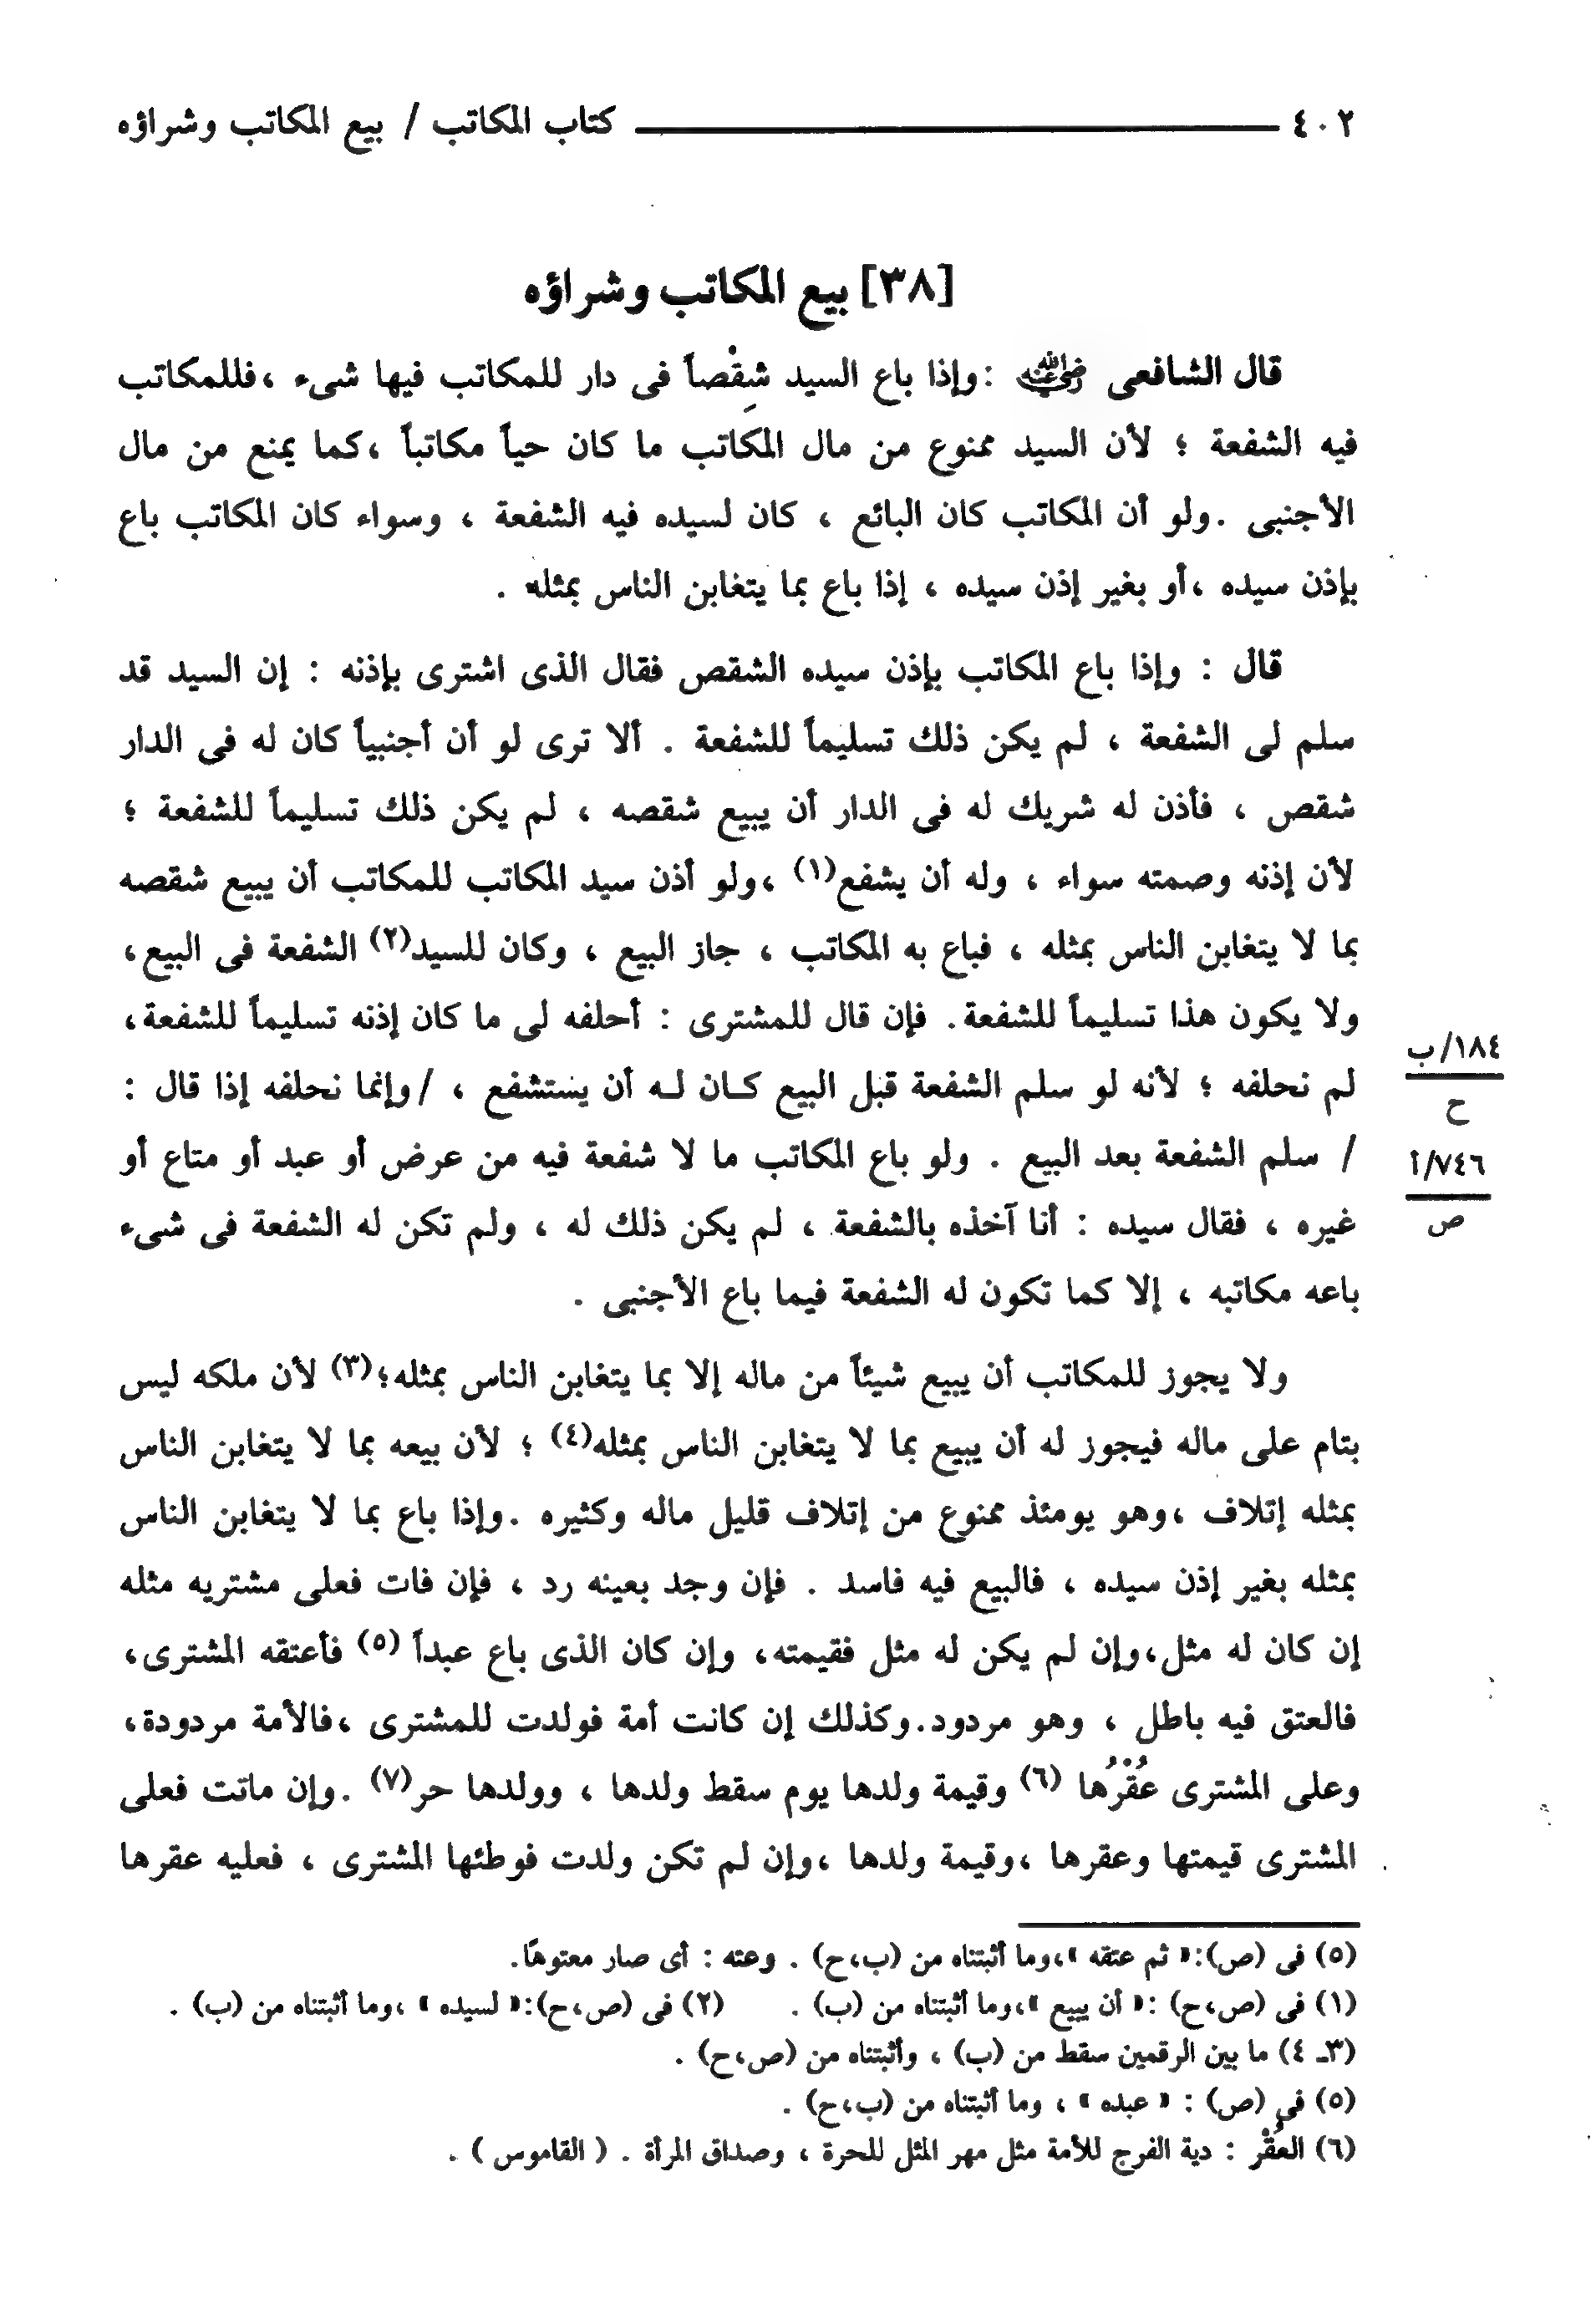 ٤٠٢ كتاب المكاتب / بيع المكاتب وشراؤه
[٣٨] بيع المكاتب وشراؤه
قال الشافعى رضي الله عنه :وإذا باع السيد شِقْصاً فى دار للمكاتب فيها شىء ،فللمكاتب
فيه الشفعة ؛ لأن السيد ممنوع من مال المكاتب ما كان حياً مكاتباً ،كما يمنع من مال
الأجنبى .ولو أن المكاتب كان البائع ، كان لسيده فيه الشفعة ، وسواء كان المكاتب باع
بإذن سيده ،أو بغير إذن سيده ، إذا باع بما يتغابن الناس بمثله .
قال : وإذا باع المكاتب بإذن سيده الشقص فقال الذى اشترى بإذنه : إن السيد قد
سلم لى الشفعة ، لم يكن ذلك تسليماً للشفعة . ألا ترى لو أن أجنبياً كان له فى الدار
شقص ، فأذن له شريك له فى الدار أن يبيع شقصه ، لم يكن ذلك تسليماً للشفعة ؛
لأن إذنه وصمته سواء ، وله أن يشفع(١) ،ولو أذن سيد المكاتب للمكاتب أن يبيع شقصه
بما لا يتغابن الناس بمثله ، فباع به المكاتب ، جاز البيع ، وكان للسيد(٢) الشفعة فى البيع،
ولا يكون هذا تسليماً للشفعة. فإن قال للمشترى : أحلفه لى ما كان إذنه تسليماً للشفعة،
١٨٤/ب
لم نحلفه ؛ لأنه لو سلم الشفعة قبل البيع كــان لــه أن يستشفع ، /وإنما نحلفه إذا قال :
ح
/ سلم الشفعة بعد البيع . ولو باع المكاتب ما لا شفعة فيه من عرض أو عبد أو متاع أو
٧٤٦/أ
غيره ، فقال سيده : أنا آخذه بالشفعة ، لم يكن ذلك له ، ولم تكن له الشفعة فى شىء
ص
باعه مكاتبه ، إلا كما تكون له الشفعة فيما باع الأجنبى .
ولا يجوز للمكاتب أن يبيع شيئاً من ماله إلا بما يتغابن الناس بمثله؛(٣) لأن ملكه ليس
بتام على ماله فيجوز له أن يبيع بما لا يتغابن الناس بمثله(٤) ؛ لأن بيعه بما لا يتغابن الناس
بمثله إتلاف ،وهو يومئذ ممنوع من إتلاف قليل ماله وكثيره .وإذا باع بما لا يتغابن الناس
بمثله بغير إذن سيده ، فالبيع فيه فاسد . فإن وجد بعينه رد ، فإن فات فعلى مشتريه مثله
إن كان له مثل،وإن لم يكن له مثل فقيمته، وإن كان الذى باع عبداً (٥) فأعتقه المشترى،
فالعتق فيه باطل ، وهو مردود.وكذلك إن كانت أمة فولدت للمشترى ،فالأمة مردودة،
وعلى المشترى عُقْرُها (٦) وقيمة ولدها يوم سقط ولدها ، وولدها حر(٧) .وإن ماتت فعلى
المشترى قيمتها وعقرها ،وقيمة ولدها ،وإن لم تكن ولدت فوطئها المشترى ، فعليه عقرها
(٥) فى (ص):« ثم عتقه »،وما أثبتناه من (ب،ح) . وعته : أى صار معتوهًا.
(١) فى (ص،ح) :« أن يبيع »،وما أثبتناه من (ب) . (٢) فى (ص،ح):« لسيده » ،وما أثبتناه من (ب) .
(٣ـ ٤) ما بين الرقمين سقط من (ب) ، وأثبتناه من (ص،ح) .
(٥) فى (ص) : « عبده » ، وما أثبتناه من (ب،ح) .
(٦) العُقْر : دية الفرج للأمة مثل مهر المثل للحرة ، وصداق المرأة . ( القاموس ) .